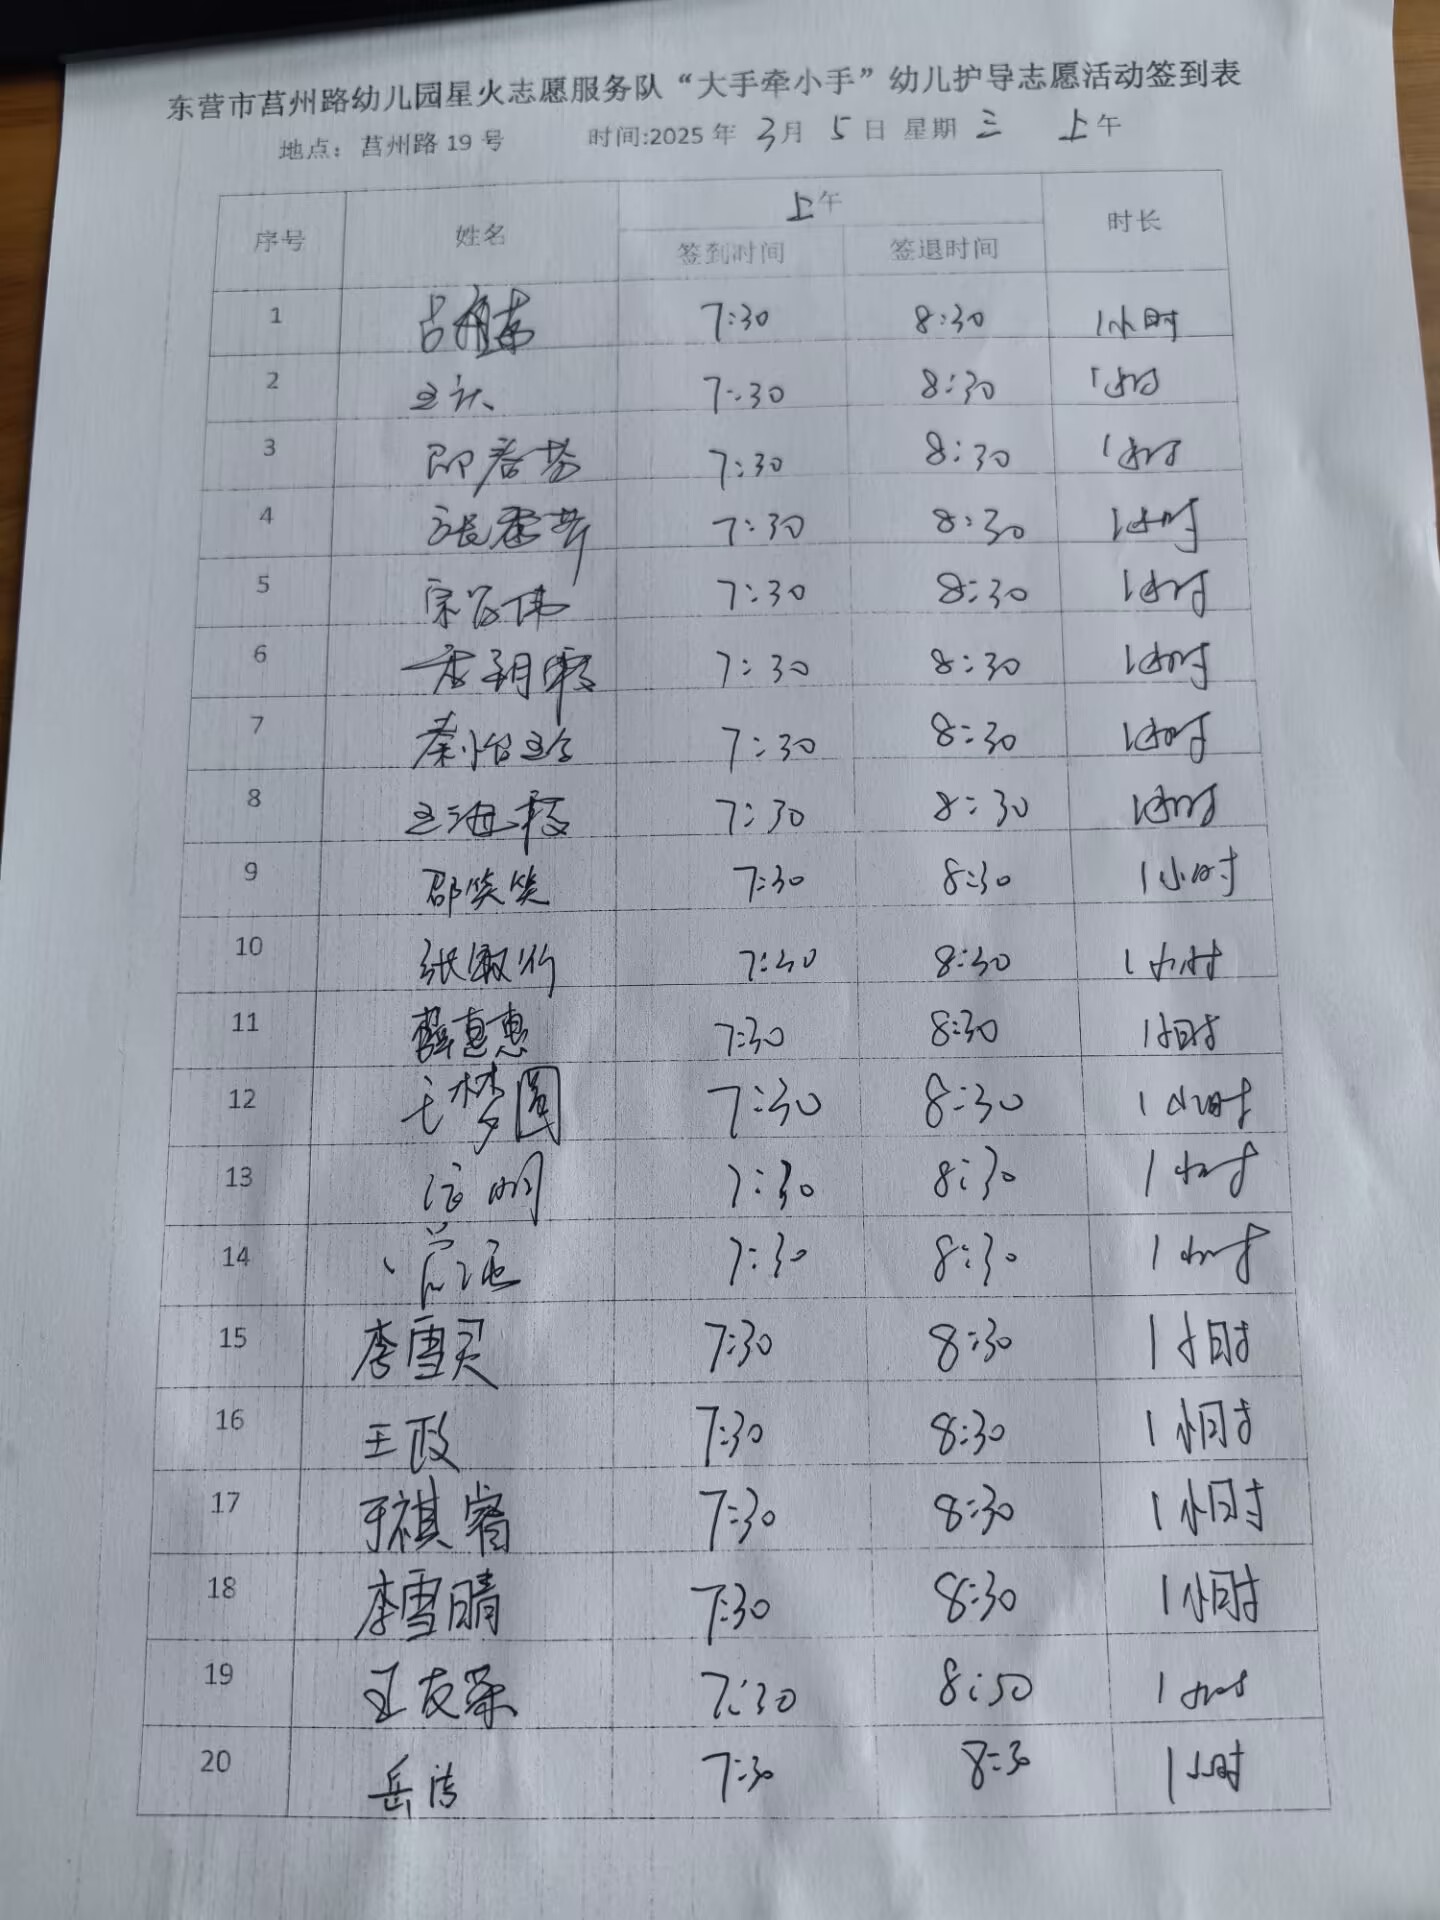 东营市莒州路幼儿园星火志愿服务队“大手牵小手”幼儿护导志愿活动签到表
地点：莒州路19号 时间:2025年3月5日 星期三 上午
序号 姓名 上午 时长
签到时间 签退时间
1 7:30 8:30 1小时
2 7:30 8:30 1小时
3 7:30 8:30 1小时
4 7:30 8:30 1小时
5 7:30 8:30 1小时
6 7:30 8:30 1小时
7 秦怡玲 7:30 8:30 1小时
8 王海霞 7:30 8:30 1小时
9 邵笑笑 7:30 8:30 1小时
10 7:30 8:30 1小时
11 薛惠惠 7:30 8:30 1小时
12 王梦圆 7:30 8:30 1小时
13 7:30 8:30 1小时
14 7:30 8:30 1小时
15 李雪 7:30 8:30 1小时
16 王政 7:30 8:30 1小时
17 于祺睿 7:30 8:30 1小时
18 李雪晴 7:30 8:30 1小时
19 王友 7:30 8:30 1小时
20 岳洁 7:30 8:30 1小时